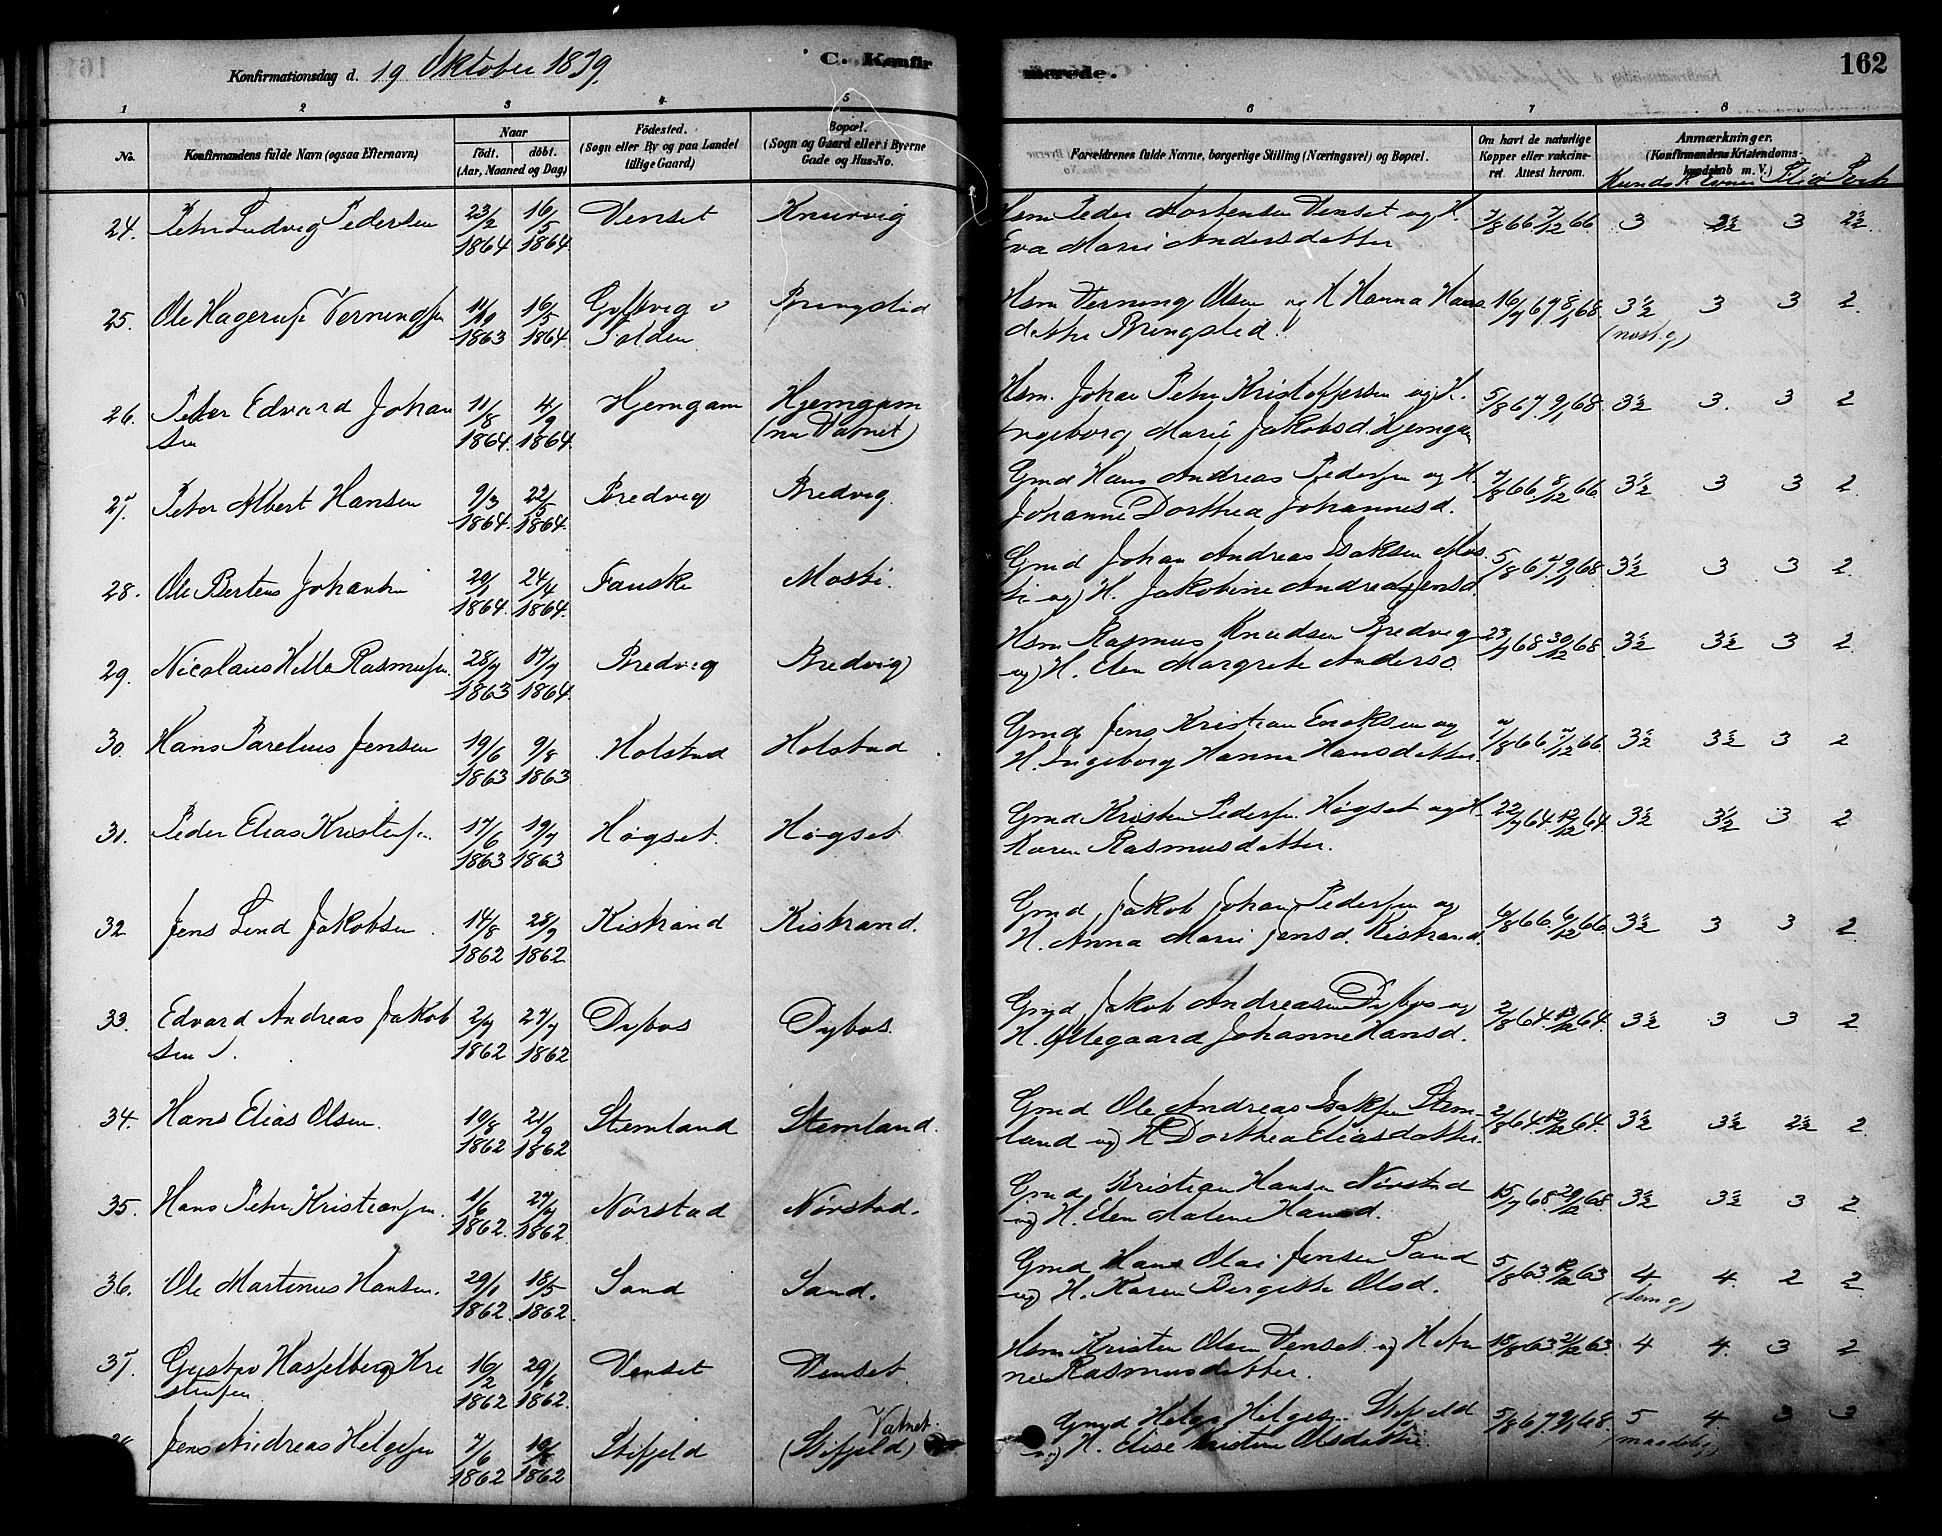 Konfirmationsdag d. 19 Oktober 1879.
C. Konfir
merede.
162
1 2 3 4 5 6 7 8
No.
Konfirmandens fulde Navn (ogsaa Efternavn)
Naar
födt. döbt.
(Aar, Maaned og Dag)
Födested.
(Sogn eller By og paa Landet
tillige Gaard)
Bopæl.
(Sogn og Gaard eller i Byerne
Gade og Hus-No.
Forældrenes fulde Navne, borgerlige Stilling (Næringsvei) og Bopæl.
Om havt de naturlige
Kopper eller vakcine-
ret. Attest herom.
Anmærkninger.
(Konfirmandens Kristendoms-
kundskab m. V.)
Kundsk. Evner Flid
24. Peter Ludvig Pedersen 23/2 1864 16/5 1864 Venset Knurvig Hsm Peder Mortensen Venset og H.
Eva Marie Andersdatter 7/8 66 7/12 66 3 2½ 3 2½
25. Ole Hagerup Verningsen 1863 16/5 1864 Folden Bringsled Hsm Verning Olsen og H Hanna Hans
datter Bringsled. 3½ 3 3 2
26. Peter Edvard Johan
sen 11/8 1864 4/9 1864 Hjemgam Hjemgam
(nu Vatnet) Hsm. Johan Peter Kristoffersen og H.
Ingeborg Marie Jakobsd. Hjemgam 5/8 67 9/1 68 3½ 3. 3 2
27. Peter Albert Hansen 9/3 1864 22/5 1864 Bredvig Bredvig Gmd Hans Andreas Pedersen og H.
Johanne Dorthea Johannesd. 7/8 66 7/12 66 3½ 3 3 2
28. Ole Bertens Johansen 29/1 1864 24/4 1864 Fauske Mosti Gmd Johan Andreas Isaksen Mos
ti og H. Jakobine Andrea Jensd. 5/8 67 9/1 68 3½ 3 3 2
29. Nicolaus Helle Rasmussen 28/7 1863 17/7 1864 Bredvig Bredvig Hsm Rasmus Knudsen Bredvig
og H. Elen Margrete Andersd. 3½ 3½ 3 2
30. Hans Parelius Jensen 19/6 1863 9/8 1863 Holstad Holstad Gmd Jens Kristian Enoksen og
H. Ingeborg Hanna Hansdatter 7/8 66 7/12 66 3½ 3½ 3 2
31. Peder Elias Kristensen 17/6 1863 19/7 1863 Høgset Høgset Gmd Kristen Pedersen Høgset og H.
Karen Rasmusdatter. 22/7 64 12/12 64 3½ 3½ 3 2
32 Jens Lind Jakobsen 14/8 1862 28/9 1862 Kistrand Kistrand. Gmd Jakob Johan Pedersen og
H. Anna Marie Jensd. Kistrand 6/8 66 6/12 66 3½ 3 3 2
33. Edvard Andreas Jakob
sen 2/7 1862 27/7 1862 Dybos Dybos. Gmd Jakob Andreasen Dybos og
H. Ollegaard Johanne Hansd. 2/8 64 12/12 64 3½ 3 3 2
34. Hans Elias Olsen. 19/8 1862 21/9 1862 Stemland Stemland. Gmd Ole Andreas Isaksen Stem-
land og H Dorthea Eliasdatter. 2/8 64 12/12 64 3½ 3½ 2½ 2
35. Hans Peter Kristiansen. 1/6 1862 27/7 1862 Nørstad Nørstad. Gmd Kristian Hansen Nørstad
og H. Elen Malene Hansd. 15/7 68 29/12 68 3½ 3½ 3 2
36. Ole Martinus Hansen. 29/1 1862 18/5 1862 Sand Sand. Gmd Hans Olai Jensen Sand
og H. Karen Bergitte Olsd. 5/8 63 12/12 63 4 4 2 2
37. Gustav Hasselberg Kri
stensen 16/2 1862 29/6 1862 Venset Venset. Hsm Kristen Olsen Venset og H An
ne Rasmusdatter. 18/8 63 21/12 63 4 4. 3 2
Jens Andreas Helgesen 7/6 1862 1862 Stifjeld Vatnet
(Stifjeld) Gmd Helge Helgesen Stifjeld
og H. Elise Kristine Olsdatter. 5/8 67 9/1 68 5 4 3 3
(maadelig)